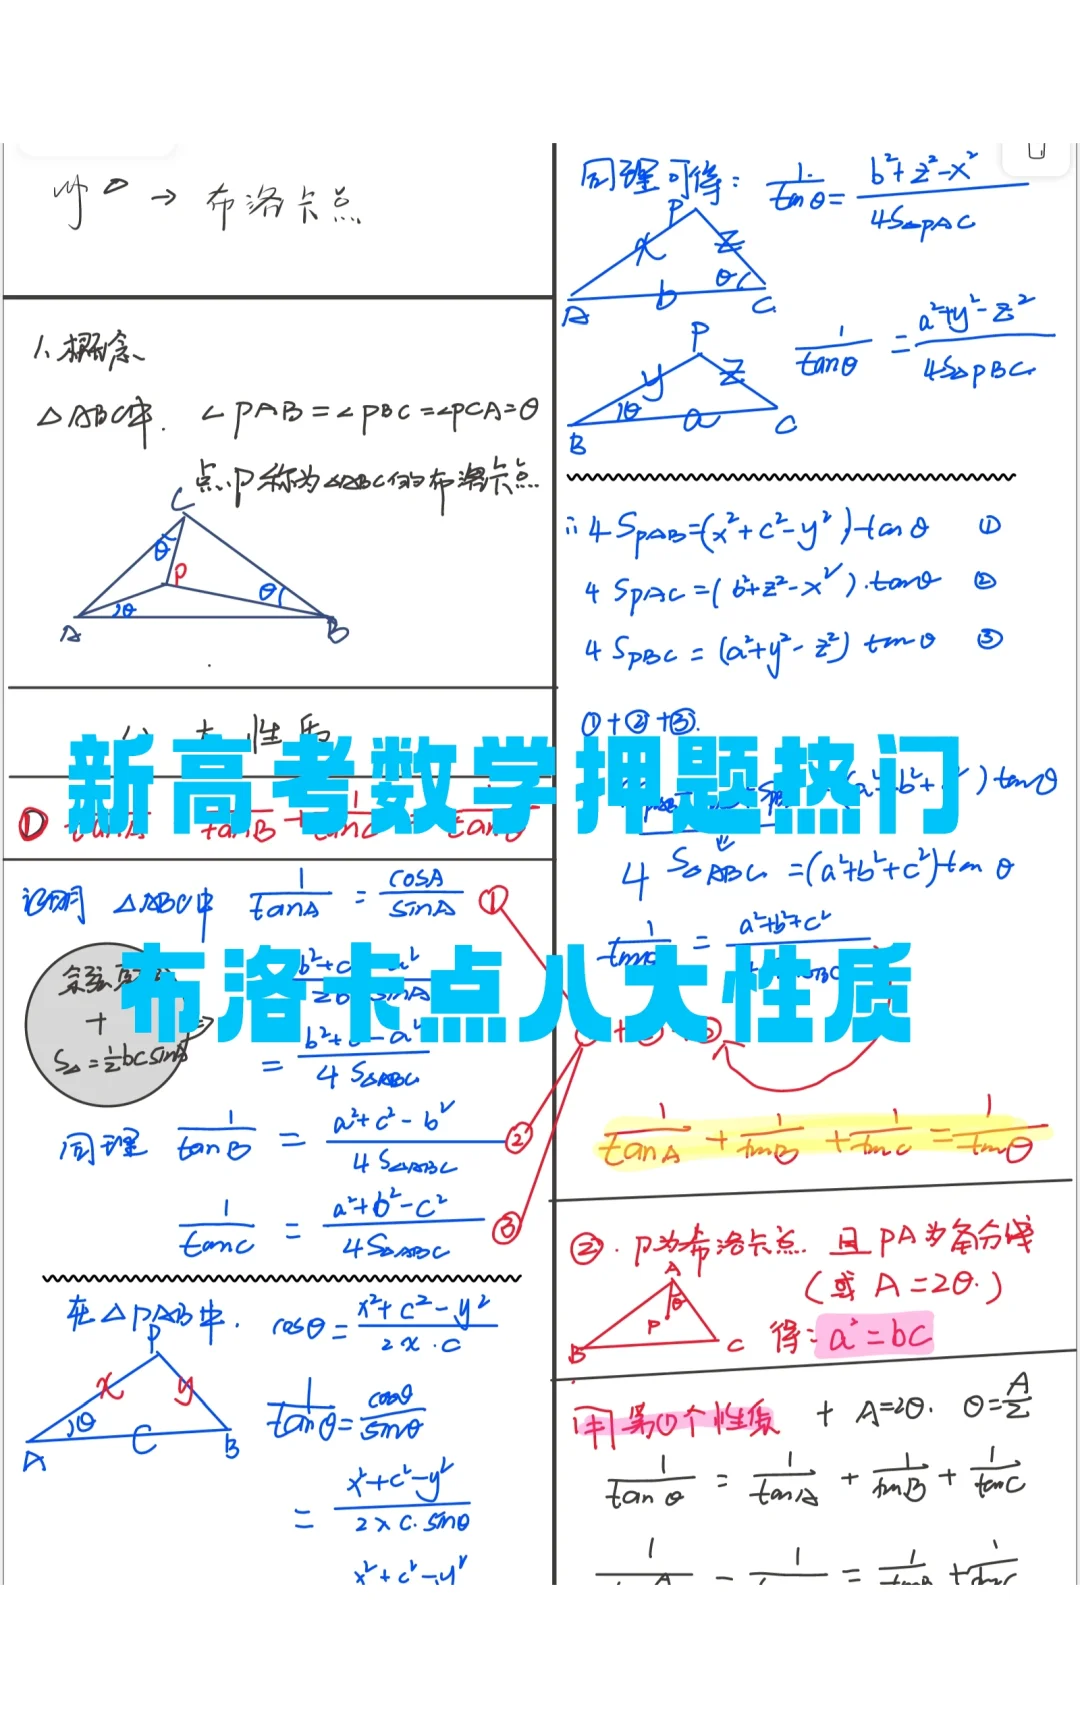 → 布洛卡点
1、概念
△ABC中. ∠PAB=∠PBC=∠PCA=θ
点P称为△ABC的布洛卡点
C
θ
P
θ
θ
A
B
新高考数学押题热门
布洛卡点八大性质
①
证明 △ABC中 1/tanA = cosA/sinA ①
+
S△=½bcsinA
= b²+c²-a²/4S△ABC
同理 1/tanB = a²+c²-b²/4S△ABC ②
1/tanC = a²+b²-c²/4S△ABC ③
在△PAB中. cosθ= x²+c²-y²/2x·c
P
x y
θ
A C B
1/tanθ = cosθ/sinθ
= x²+c²-y²/2xc·sinθ
x²+c²-y²
同理可得: 1/tanθ = b²+z²-x²/4S△PAC
P
x z
θ
A b C
1/tanθ = a²+y²-z²/4S△PBC
P
y z
θ
B a C
∴4SPAB=(x²+c²-y²)tanθ ①
4SPAC=(b²+z²-x²).tanθ ②
4SPBC=(a²+y²-z²)tanθ ③
①+②+③.
4S△ABC=(a²+b²+c²)tanθ
1/tanA + 1/tanB + 1/tanC = 1/tanθ
②. P为布洛卡点. 且PA为角分线
(或A=2θ.)
A
θ
P
B C
得: a²=bc
用第①个性质 + A=2θ. θ=A/2
1/tanθ = 1/tanA + 1/tanB + 1/tanC